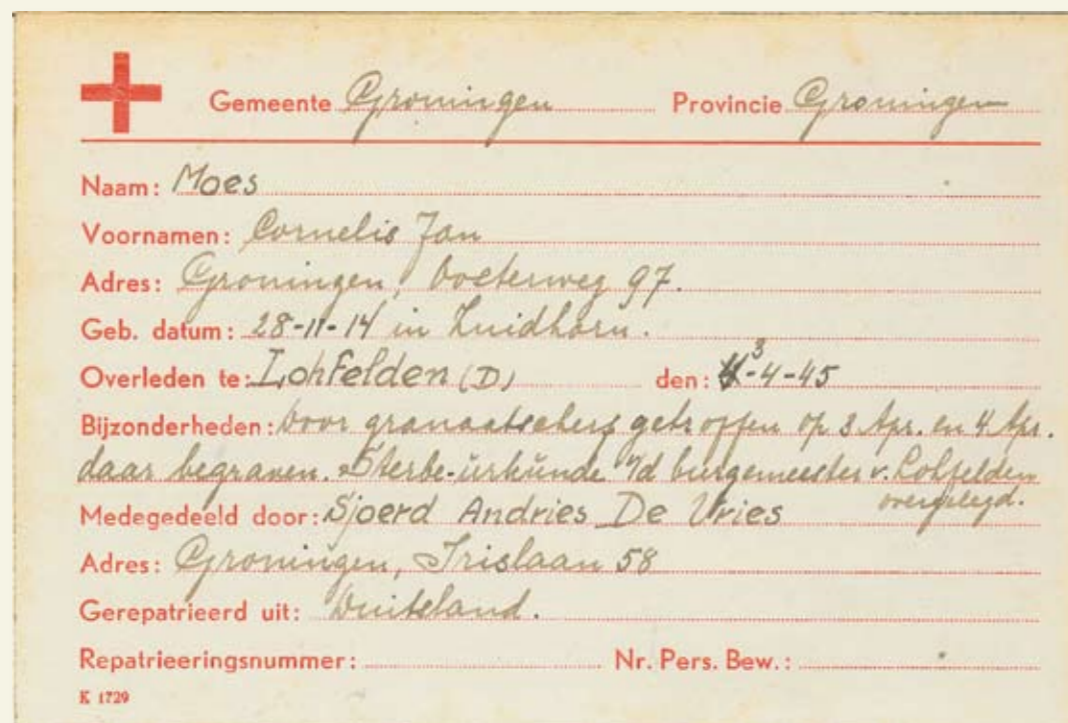 Gemeente Groningen Provincie Groningen
Naam: Moes
Voornamen: Cornelis Jan
Adres: Groningen, Oosterweg 97.
Geb. datum: 28-11-14 in Zuidhorn.
Overleden te: Lohfelden (D) den: 3-4-45
Bijzonderheden: Door granaatscherf getroffen op 3 Apr. en 4 Apr.
daar begraven. Sterbe-ürkünde v/d burgemeester v. Lohfelden
overgelegd.
Medegedeeld door: Sjoerd Andries De Vries
Adres: Groningen, Irislaan 58
Gerepatrieerd uit: Duitsland.
Repatrieeringsnummer: Nr. Pers. Bew.:
K 1729